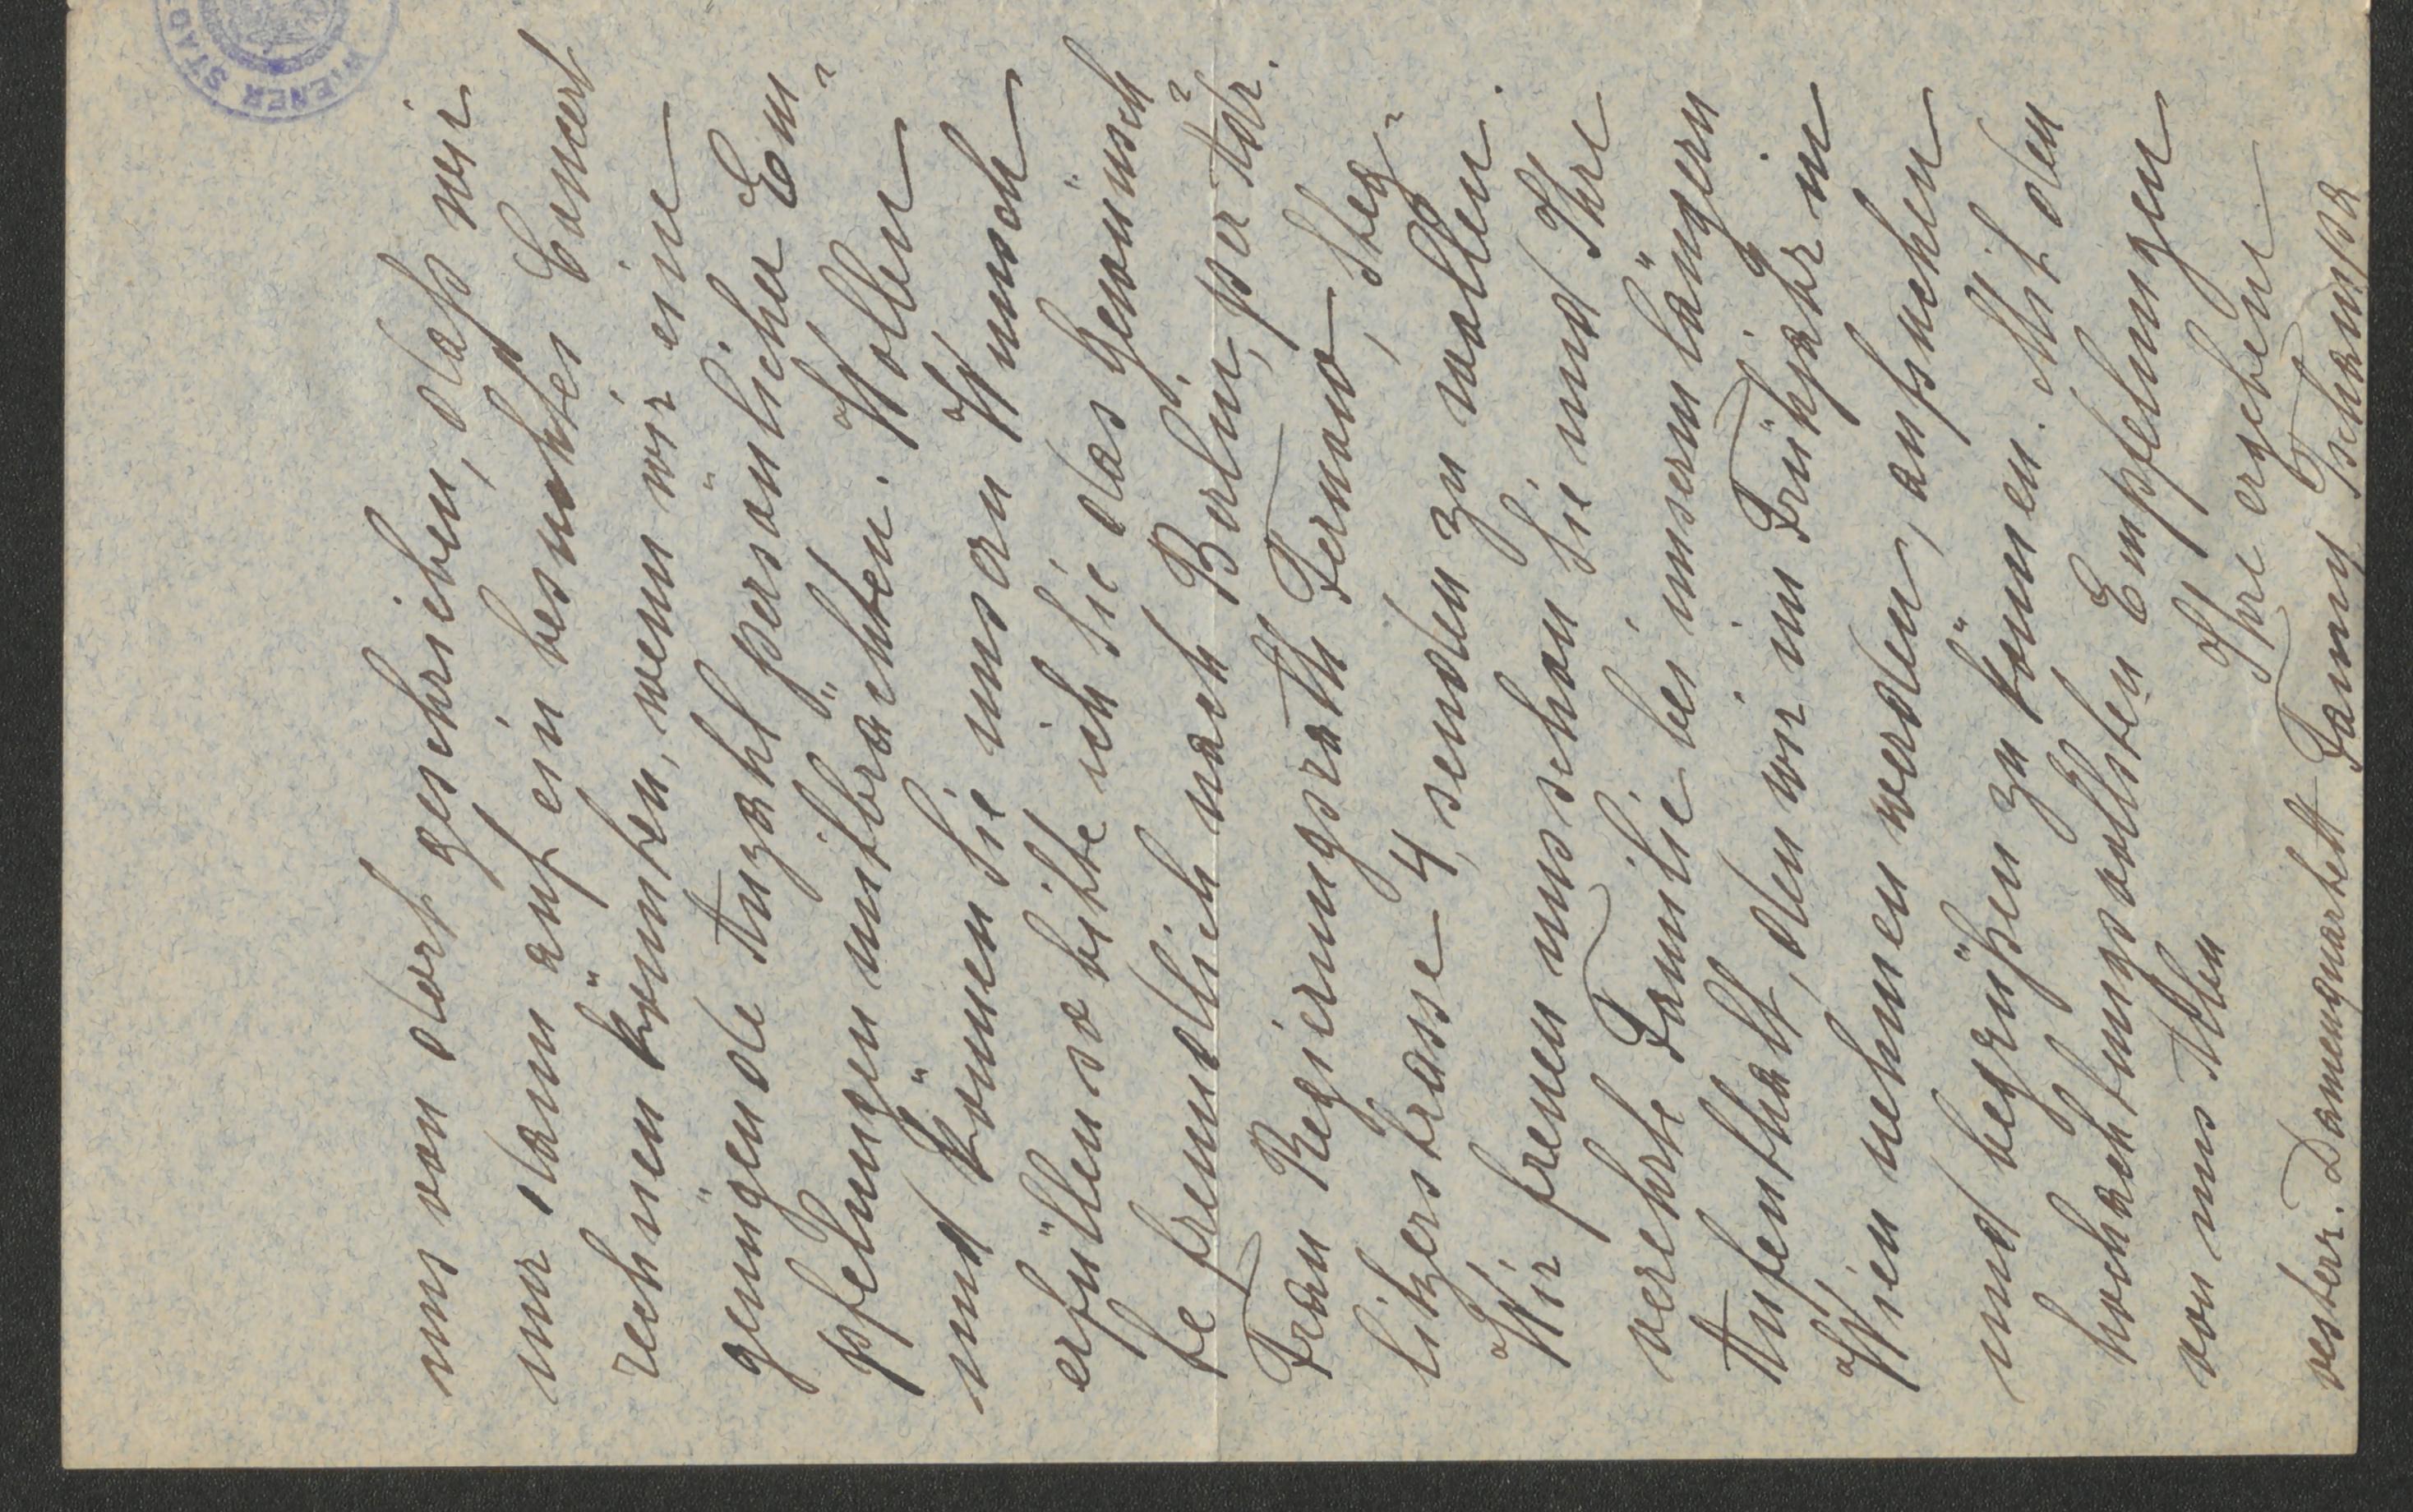 WIENER STAD
uns von dort geschrieben, daß wir
nur dann auf ein besuchtes Concert
rechnen könnten, wenn wir eine
genügende Anzahl persönlicher Em-
pfelungen mitbrächten. Wollen
und können Sie unsern Wunsch
erfüllen so bitte ich Sie das Gewünsch-
te freundlich nach Berlin, per Adr.
Frau Regierungsrath Fernow, Steg-
litzerstrasse 4, senden zu wollen.
Wir freuen uns schon Sie und Ihre
verehrte Familie bei unserm längern
Aufenthalt, den wir im Frühjahr in
Wien nehmen werden, aufsuchen
und begrüßen zu können. Mit den
hochachtungsvollsten Empfelungen
von uns Allen
Ihre ergebene
oesterr. Damenquartett Fanny Tschampa